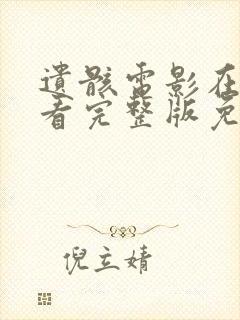 遗骸电影在
看完整版免
倪立婧